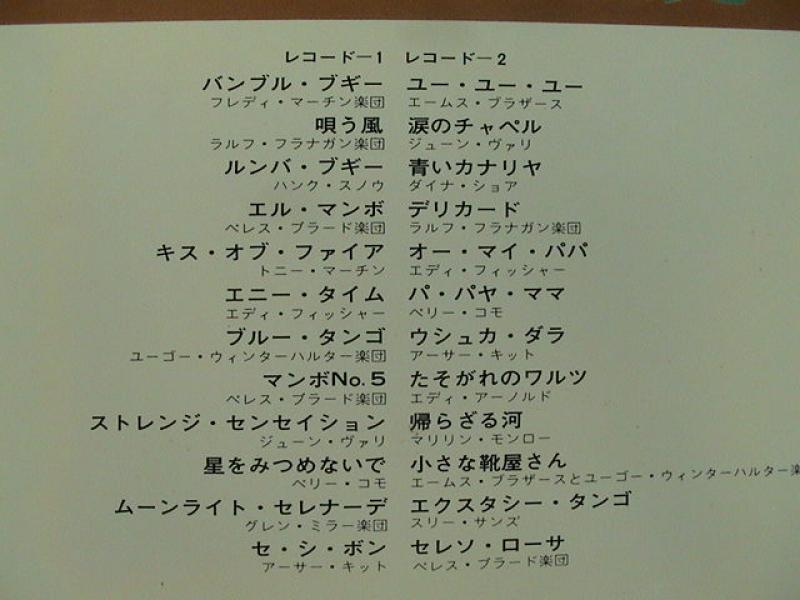 レコード—1
バンブル・ブギー
フレディ・マーチン楽団
唄う風
ラルフ・フラナガン楽団
ルンバ・ブギー
ハンク・スノウ
エル・マンボ
ペレス・プラード楽団
キス・オブ・ファイア
トニー・マーチン
エニー・タイム
エディ・フィッシャー
ブルー・タンゴ
ユーゴー・ウィンターハルター楽団
マンボNo.5
ペレス・プラード楽団
ストレンジ・センセイション
ジューン・ヴァリ
星をみつめないで
ペリー・コモ
ムーンライト・セレナーデ
グレン・ミラー楽団
セ・シ・ボン
アーサー・キット
レコード—2
ユー・ユー・ユー
エームス・ブラザース
涙のチャペル
ジューン・ヴァリ
青いカナリヤ
ダイナ・ショア
デリカード
ラルフ・フラナガン楽団
オー・マイ・パパ
エディ・フィッシャー
パ・パヤ・ママ
ペリー・コモ
ウシュカ・ダラ
アーサー・キット
たそがれのワルツ
エディ・アーノルド
帰らざる河
マリリン・モンロー
小さな靴屋さん
エームス・ブラザースとユーゴー・ウィンターハルター楽
エクスタシー・タンゴ
スリー・サンズ
セレソ・ローサ
ペレス・プラード楽団